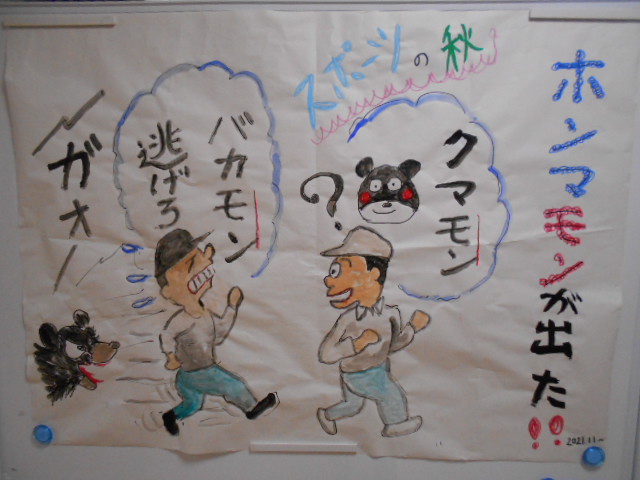 ホンマモンが出た!!
2023.11～
スポーツの秋
クマモン
?
バカモン
逃げろ
ガオー